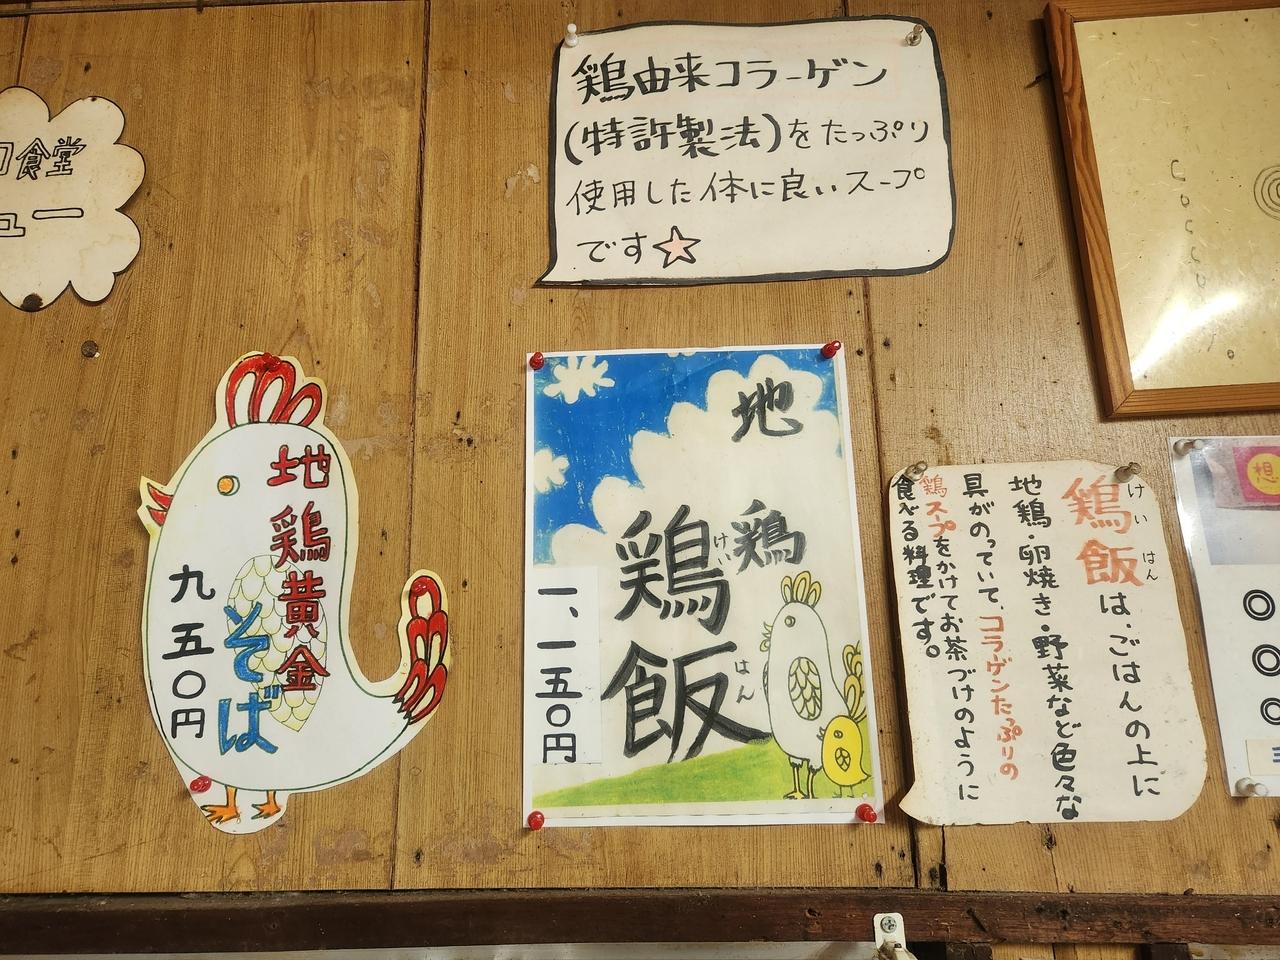 食堂
ュー
鶏由来コラーゲン
(特許製法)をたっぷり
使用した体に良いスープ
です☆
地鶏黄金
そば
九五〇円
地鶏
鶏飯
けい
はん
一、一五〇円
鶏飯は、ごはんの上に
けい
はん
地鶏・卵焼き・野菜など色々な
具がのっていて、コラーゲンたっぷりの
鶏スープをかけてお茶づけのように
食べる料理です。
想
◎
◎